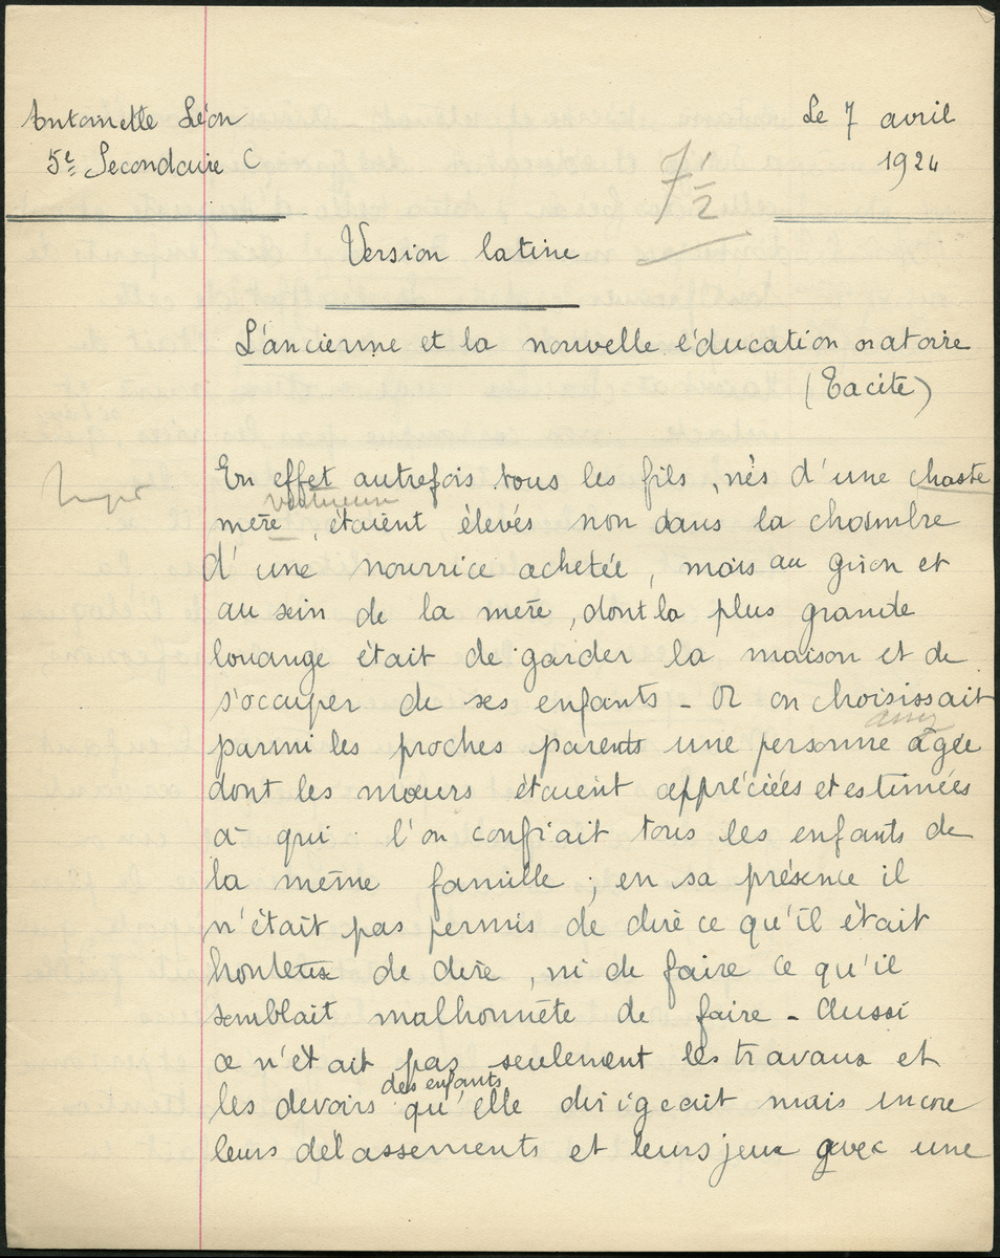 Antoinette Léon
Le 7 avril
5e Secondaire C
1924
7 1/2
Version latine
L'ancienne et la nouvelle éducation oratoire
(Tacite)
En effet autrefois tous les fils, nés d'une chaste
vertueuse
mère, étaient élevés non dans la chambre
d'une nourrice achetée, mais au giron et
au sein de la mère, dont la plus grande
louange était de garder la maison et de
s'occuper de ses enfants - Or on choisissait
assez
parmi les proches parents une personne âgée
dont les mœurs étaient appréciées et estimées
à qui l'on confiait tous les enfants de
la même famille ; en sa présence il
n'était pas permis de dire ce qu'il était
honteux de dire, ni de faire ce qu'il
semblait malhonnête de faire - Aussi
ce n'était pas seulement les travaux et
des enfants
les devoirs qu'elle dirigeait mais encore
leurs délassements et leurs jeux avec une